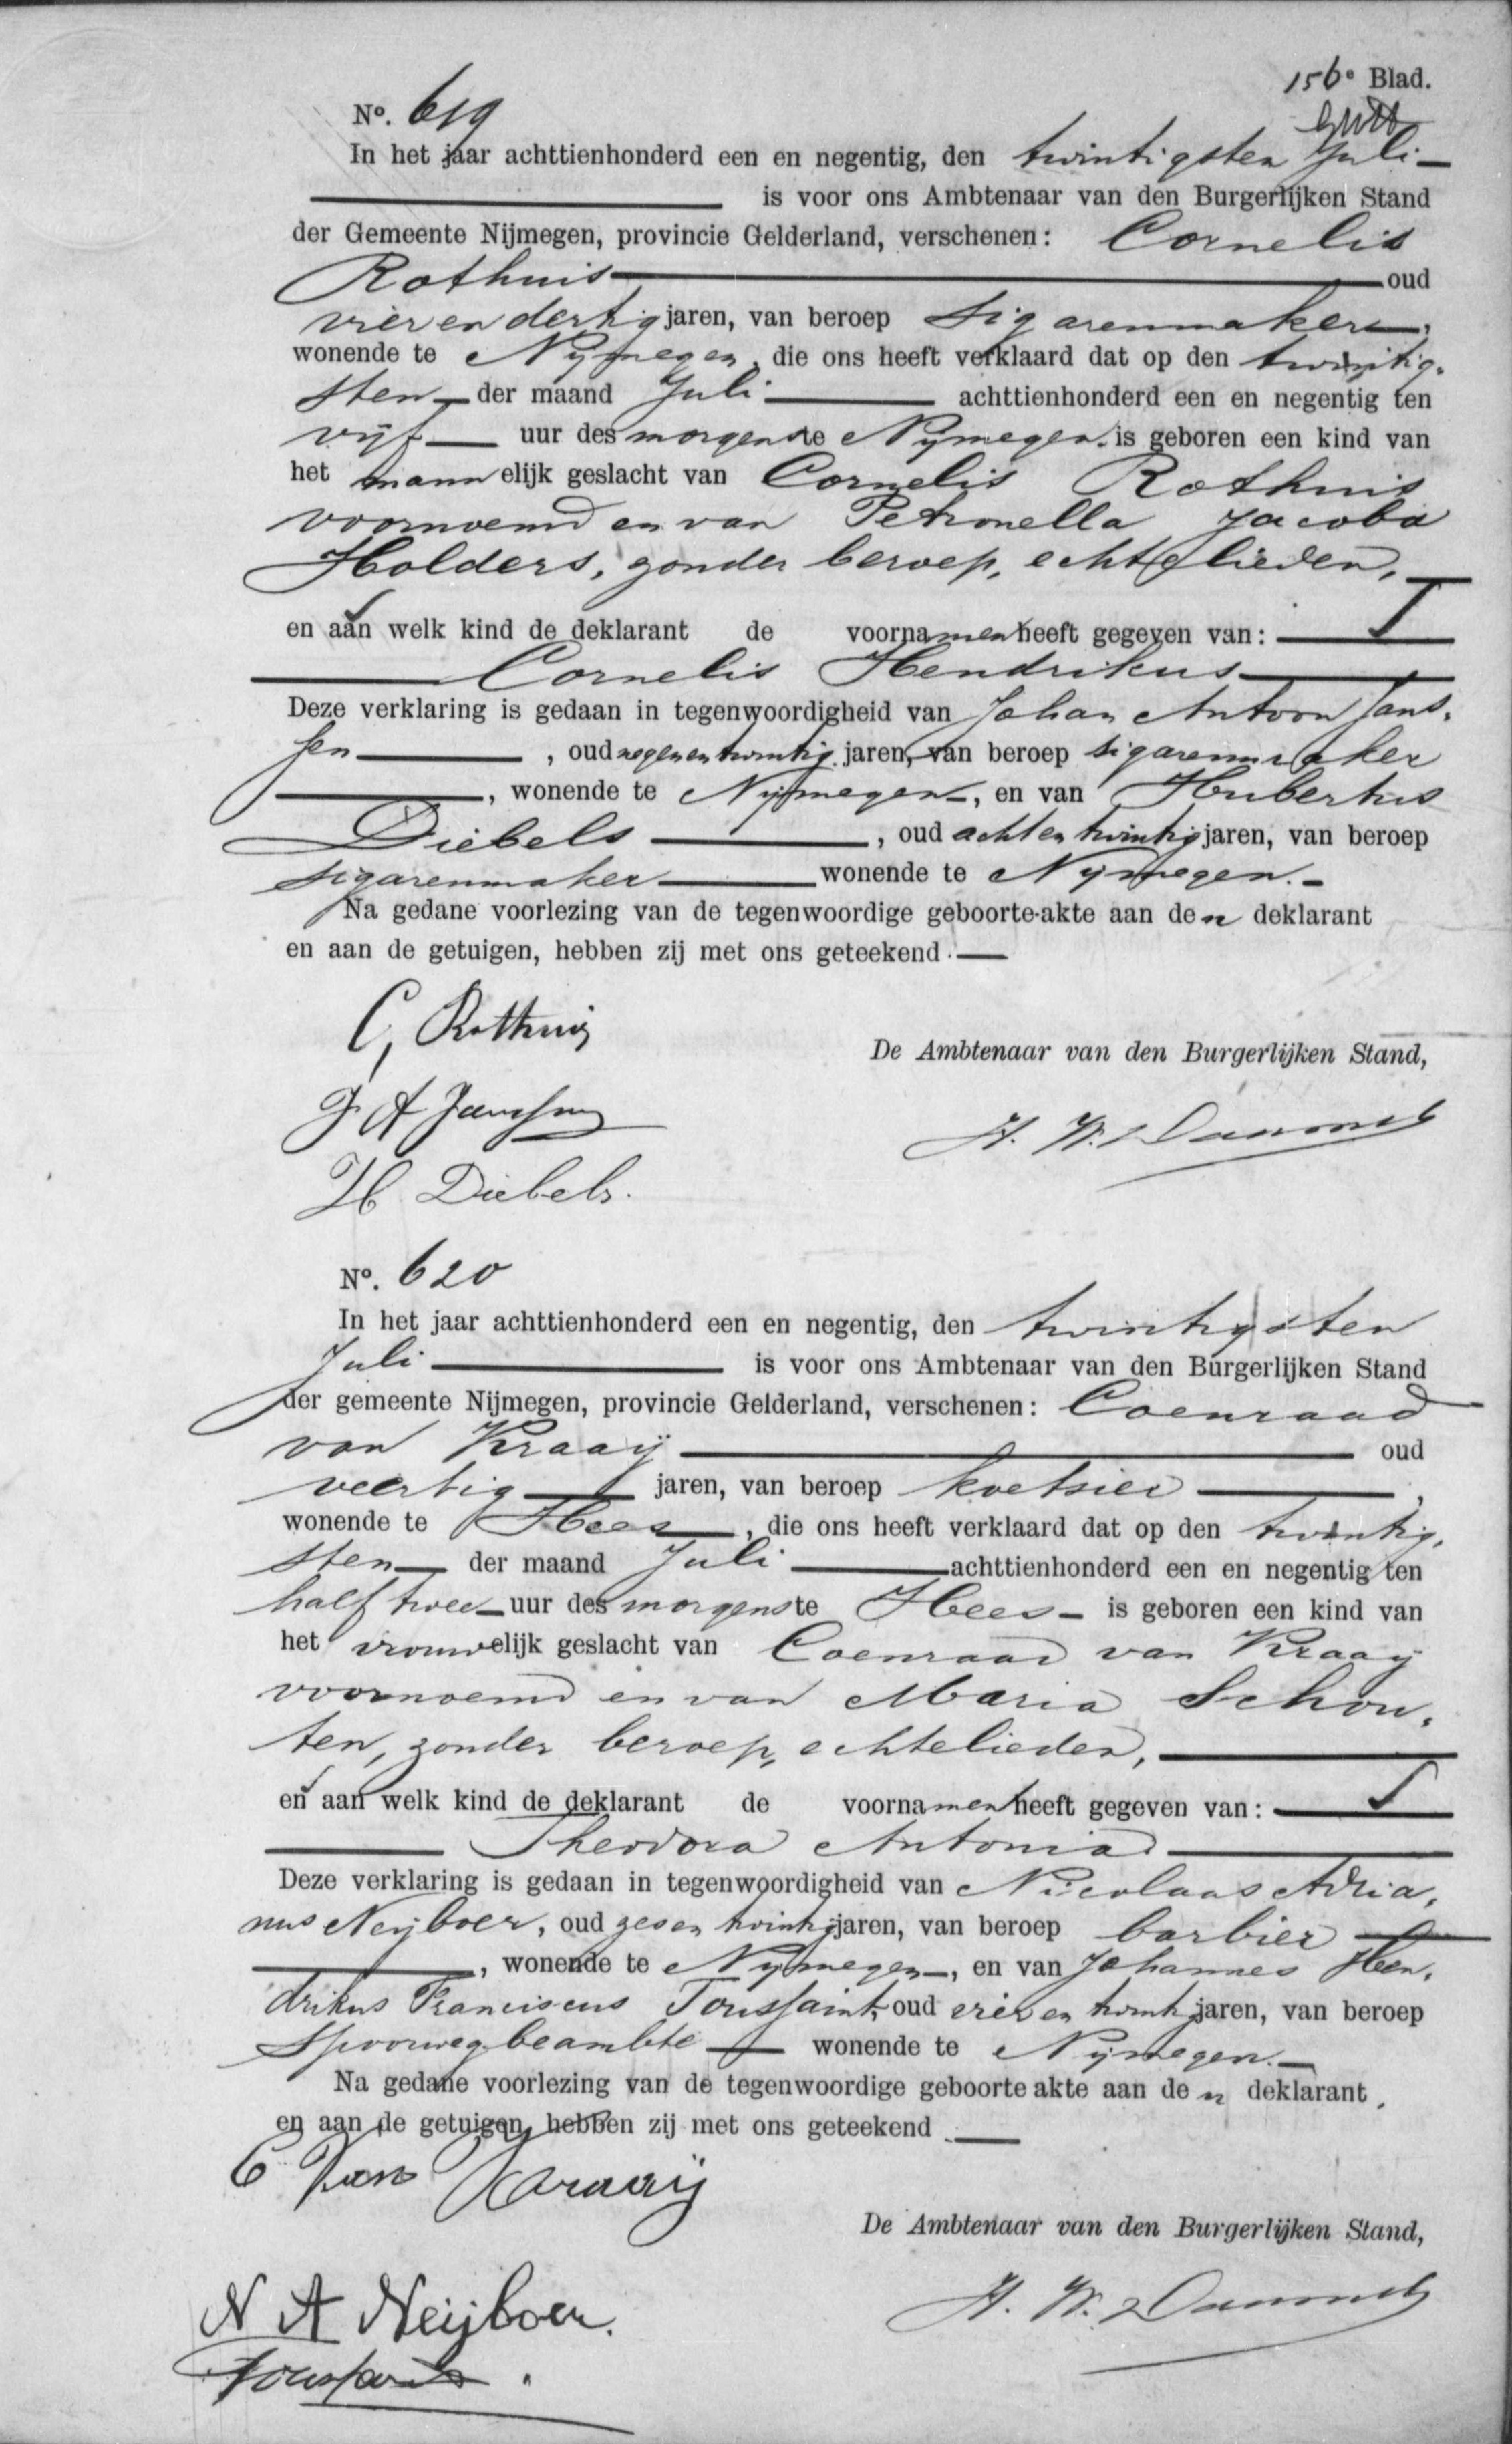 156e Blad.
No. 619
In het jaar achttienhonderd een en negentig, den twintigsten Juli
is voor ons Ambtenaar van den Burgerlijken Stand
der Gemeente Nijmegen, provincie Gelderland, verschenen: Cornelis
Rothuis oud
vier en dertig jaren, van beroep sigarenmaker,
wonende te Nijmegen, die ons heeft verklaard dat op den twintig-
sten der maand Juli achttienhonderd een en negentig ten
vijf uur des morgens te Nijmegen is geboren een kind van
het mannelijk geslacht van Cornelis Rothuis
voornoemd en van Petronella Jacoba
Holders, zonder beroep, echtelieden,
en aan welk kind de deklarant de voornamen heeft gegeven van:
Cornelis Hendrikus
Deze verklaring is gedaan in tegenwoordigheid van Johan Antoon Jans-
sen, oud negen en twintig jaren, van beroep sigarenmaker
, wonende te Nijmegen, en van Hubertus
Diebels, oud acht en twintig jaren, van beroep
sigarenmaker wonende te Nijmegen.
Na gedane voorlezing van de tegenwoordige geboorte-akte aan den deklarant
en aan de getuigen, hebben zij met ons geteekend.
C, Rothuis
De Ambtenaar van den Burgerlijken Stand,
J A Janssen
H. W.
H Diebels.
No. 620
In het jaar achttienhonderd een en negentig, den twintigsten
Juli is voor ons Ambtenaar van den Burgerlijken Stand
der gemeente Nijmegen, provincie Gelderland, verschenen: Coenraad
van Kraaij oud
veertig jaren, van beroep koetsier,
wonende te Hees, die ons heeft verklaard dat op den twintig-
sten der maand Juli achttienhonderd een en negentig ten
half twee uur des morgens te Hees is geboren een kind van
het vrouwelijk geslacht van Coenraad van Kraaij
voornoemd en van Maria Schou-
ten, zonder beroep, echtelieden,
en aan welk kind de deklarant de voornamen heeft gegeven van:
Theodora Antonia
Deze verklaring is gedaan in tegenwoordigheid van Nicolaas Adria-
nus Neijboer, oud zes en twintig jaren, van beroep barbier
, wonende te Nijmegen, en van Johannes Hen-
drikus Franciscus Toussaint, oud vier en twintig jaren, van beroep
Spoorwegbeambte wonende te Nijmegen.
Na gedane voorlezing van de tegenwoordige geboorte akte aan den deklarant,
en aan de getuigen, hebben zij met ons geteekend.
C Van Kraaij
De Ambtenaar van den Burgerlijken Stand,
N A Neijboer.
H. W.
Toussaint.